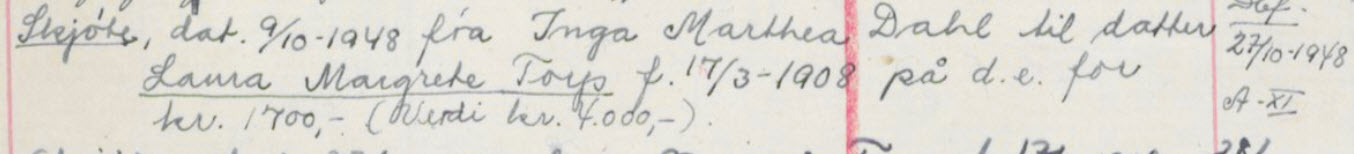 Skjöte, dat. 9/10-1948 fra Inga Marthea Dahl til datter
Laura Margrete Torp f. 17/3-1908 på d.e. for
kr. 1700,- (Verdi kr. 4.000,-).
27/10-1948
A-XI